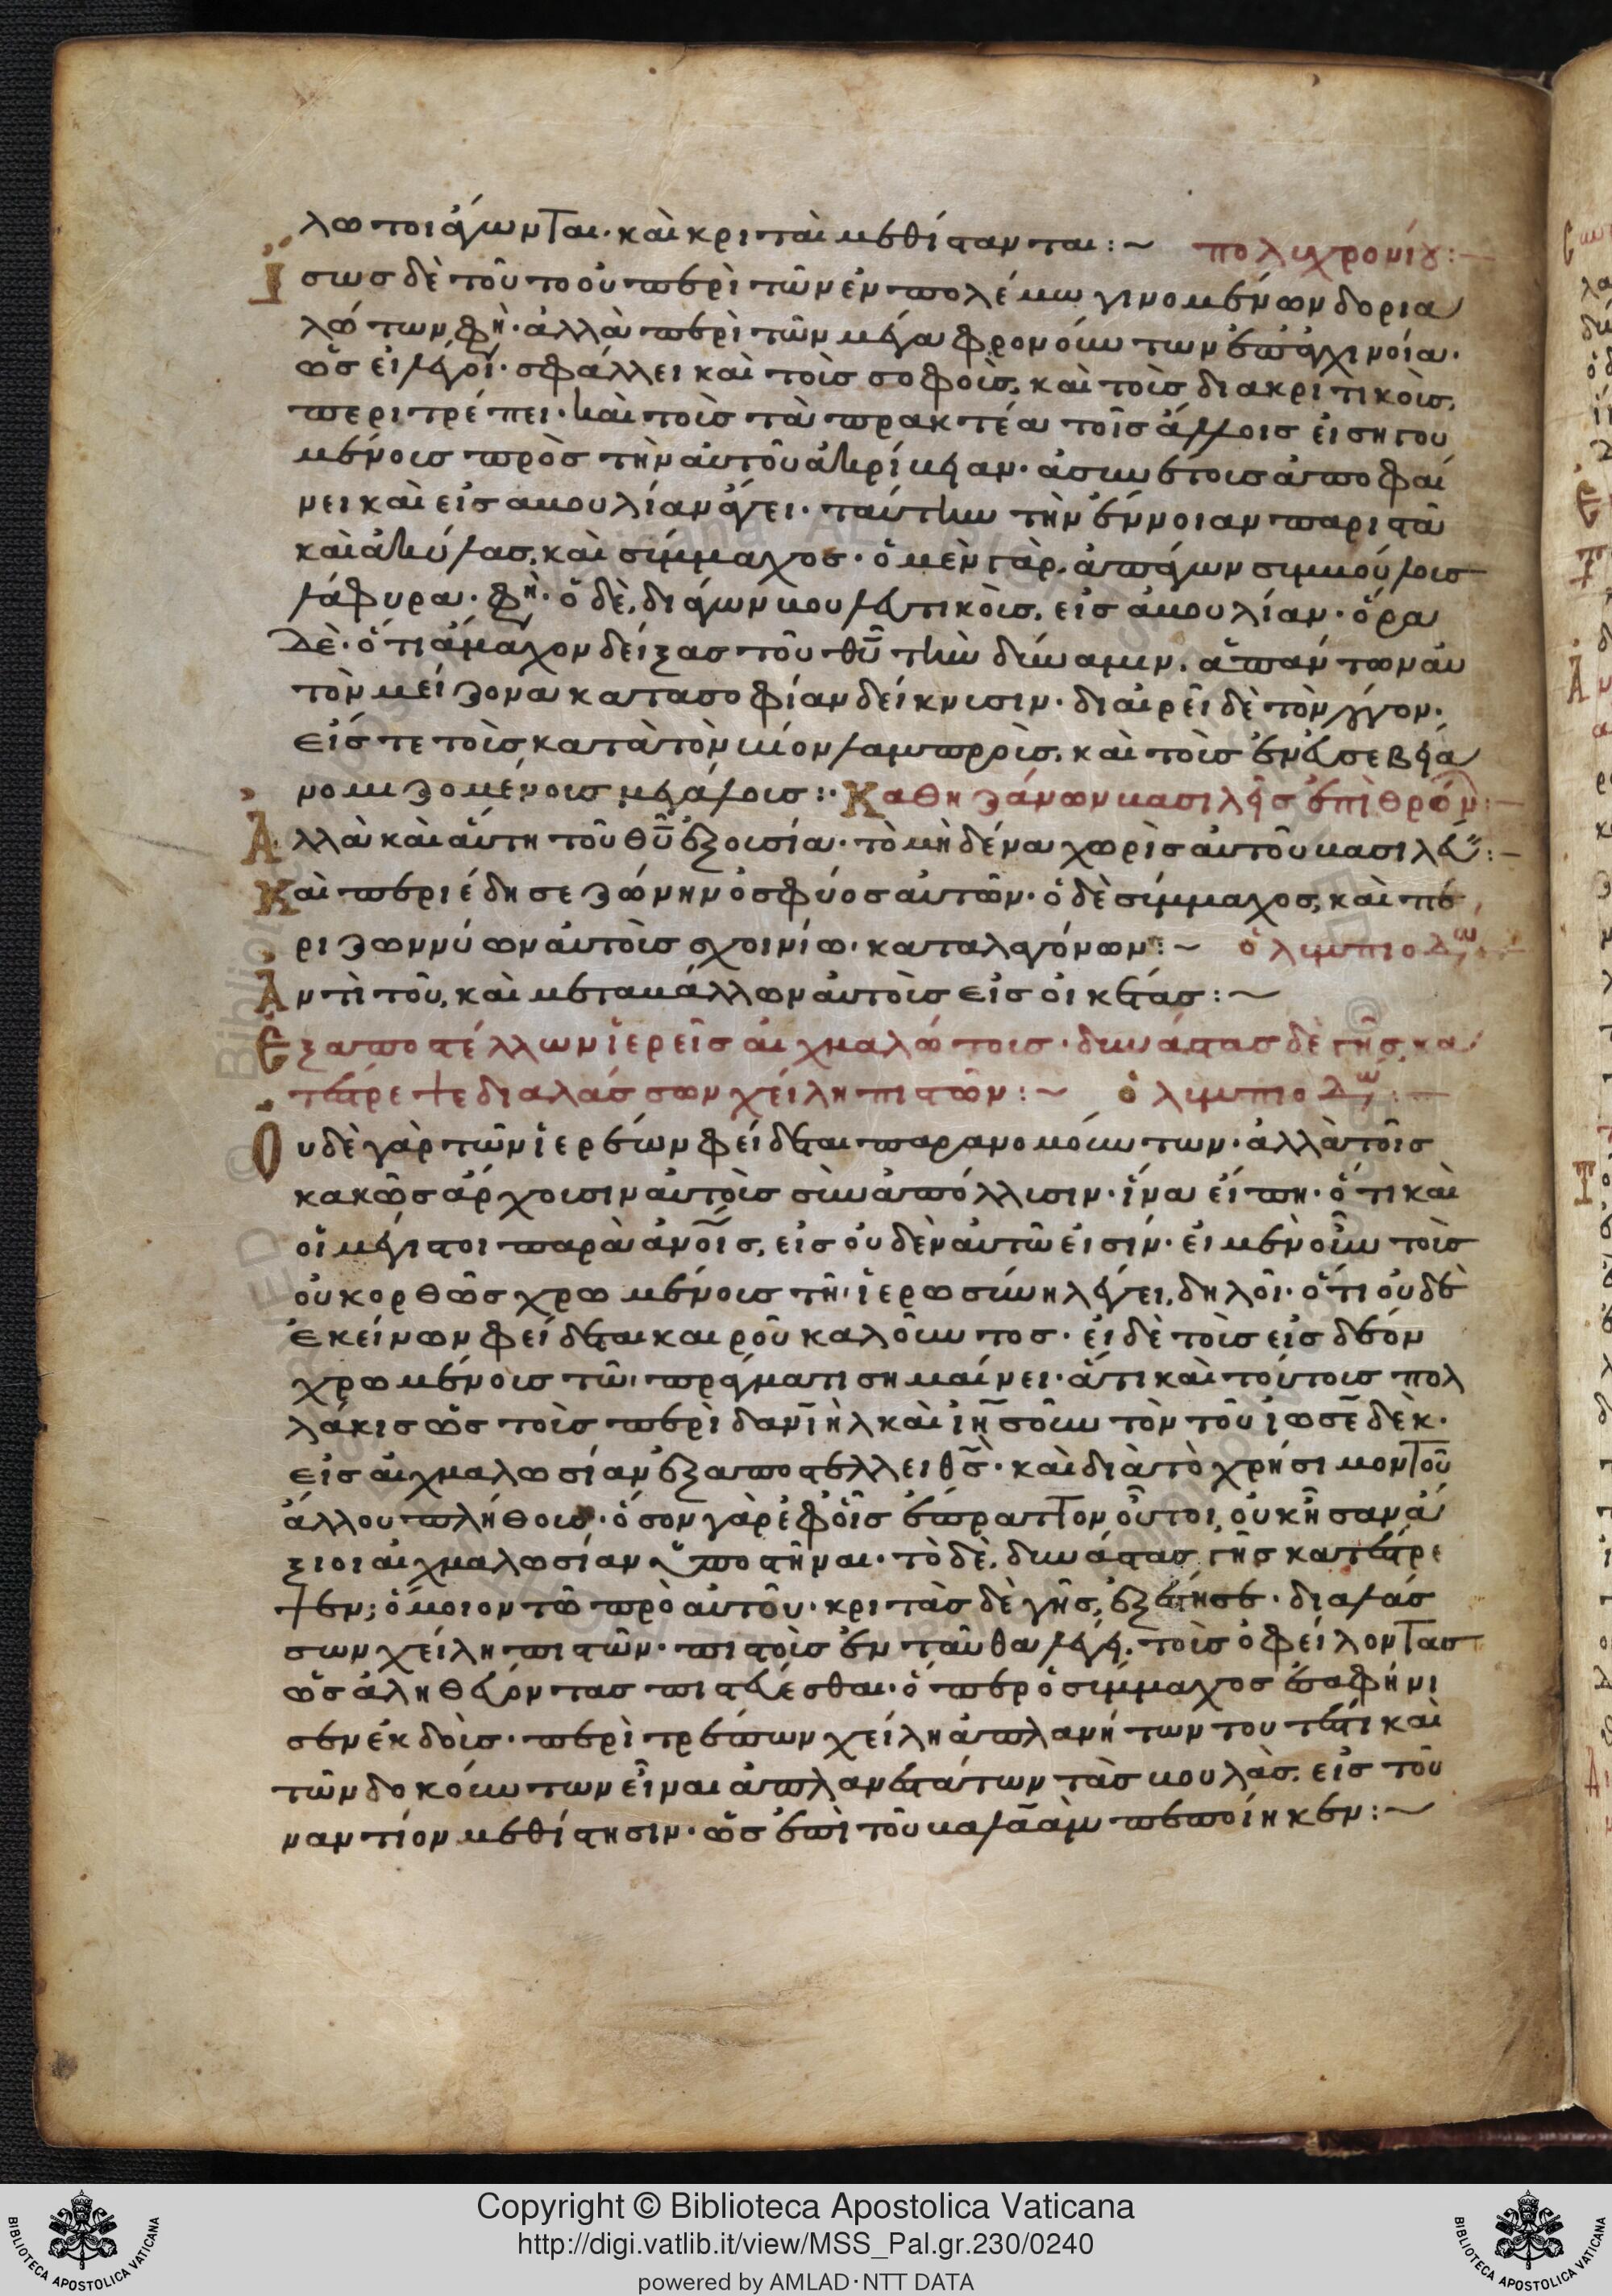 λωτοι ἄγωνται· καὶ κριταὶ μεθίστανται:~ πολυχρονίου:–
Ἴσως δὲ τοῦτο οὐ περὶ τῶν ἐν πολέμω γινομένων δορια
λώτων φη· ἀλλὰ περὶ τῶν μέγα φρονούντων ἐπ' ἀγχινοία·
ὡσεὶ λέγοι· σφάλλει καὶ τοὺς σοφοὺς, καὶ τοὺς διακριτικοὺς,
περιτρέπει· καὶ τοὺς τὰ πρακτέα τοῖς ἄλλοις εἰσηγου
μένους πρὸς τὴν αὐτοῦ ἀκρίβειαν· ἀσυνέτους ἀποφαί
νει καὶ εἰς αβουλίαν ἄγει· ταύτην τὴν ἔννοιαν παριστᾶ
καὶ ἀκύλας, καὶ σύμμαχος· ὁ μὲν γὰρ, ἀπάγων συμβούλους
λάφυρα· φη· ὁ δὲ, διάγων βουλευτικοὺς, εἰς ἀβουλίαν· ὅρα
δὲ· ὅτι ἄμαχον δείξας τοῦ θυ τὴν δύναμιν, ἁπάντων αὐ
τὸν μείζονα κατὰ σοφίαν δείκνυσιν· διαιρεῖ δὲ τὸν λόγον·
εἴς τε τοὺς κατὰ τὸν βίον λαμπροὺς, καὶ τοὺς ἐν εὐσεβεία
νομιζομένους μεγάλους:· Καθιζάνων βασιλεῖς ἐπὶ θρόν:–
Ἀλλὰ καὶ αὕτη τοῦ θυ ἐξουσία· τὸ μηδένα χωρὶς αὐτοῦ βασιλεύ:–
Καὶ περιέδησε ζώνην ὀσφύος αὐτῶν· ὁ δὲ σύμμαχος, καὶ πε
ριζωννύων αὐτοὺς σχοινίω· καταλεγόνων:~ ὀλυμπιοδω:–
Ἀντὶ τοῦ, καὶ μεταβάλλων αὐτοὺς εἰς οἰκέτας:~
Ἐξαποστέλλων ἱερεῖς αἰχμαλώτους· δυνάστας δὲ γῆς, κα
τέστρεψε διαλάσσων χείλη πιστῶν:~ ὀλυμπιοδω:–
Οὐδὲ γὰρ τῶν ἱερέων φείδεται παρανομούντων· ἀλλὰ τοῖς
κακῶς ἄρχουσιν αὐτοὺς συναπόλλυσιν· ἵνα εἴπη· ὅτι καὶ
οἱ μέγιστοι παρὰ ἀνοις, εἰς οὐδὲν αὐτῶ εἰσίν· εἰ μὲν οὖν τοὺς
οὐκ ορθῶς χρωμένους τῆ ἱερωσύνη λέγει, δηλοῖ· ὅτι οὐδὲ
ἐκείνων φείδεται καιροῦ καλοῦντος· εἰ δὲ τοὺς εἰς δέον
χρωμένους τῶ πράγματι σημαίνει· ὅτι καὶ τούτους πολ
λάκις ὡς τοὺς περὶ δανιὴλ καὶ ἰησοῦν τὸν τοῦ ἰωσεδὲκ·
εἰς αἰχμαλωσίαν ἐξαποστέλλει θς· καὶ διὰ τὸ χρήσιμον τοῦ
ἄλλου πλήθους· ὅσον γὰρ ἐφ' οἷς ἔπραττον οὗτοι, οὐκ ῆσαν ἄ
ξιοι αἰχμαλωσίαν ὑποστῆναι· τὸ δὲ, δυνάστας γῆς κατέστρε
ψεν; ὅμοιον τῶ πρὸ αὐτοῦ· κριτὰς δὲ γῆς, ἐξέστησε· διαλάσ
σων χείλη πιστῶν· πιστοὺς ἐνταῦθα λέγει, τοὺς ὀφείλοντας
ὡς ἀληθεύοντας πιστεύεσθαι· ὅπερ ὁ σύμμαχος ἐσαφήνι
σεν ἐκδοὺς· περιτρέπων χείλη ἀπλανήτων τουτέστι καὶ
τῶν δοκούντων εἶναι ἀπλανεστάτων τὰς βουλὰς, εἰς τοὐ
ναντίον μεθίστησιν· ὡς ἐπὶ τοῦ βαλαὰμ πεποίηκεν:~
Copyright © Biblioteca Apostolica Vaticana
http://digi.vatlib.it/view/MSS_Pal.gr.230/0240
powered by AMLAD·NTT DATA
BIBLIOTECA APOSTOLICA VATICANA
BIBLIOTECA APOSTOLICA VATICANA